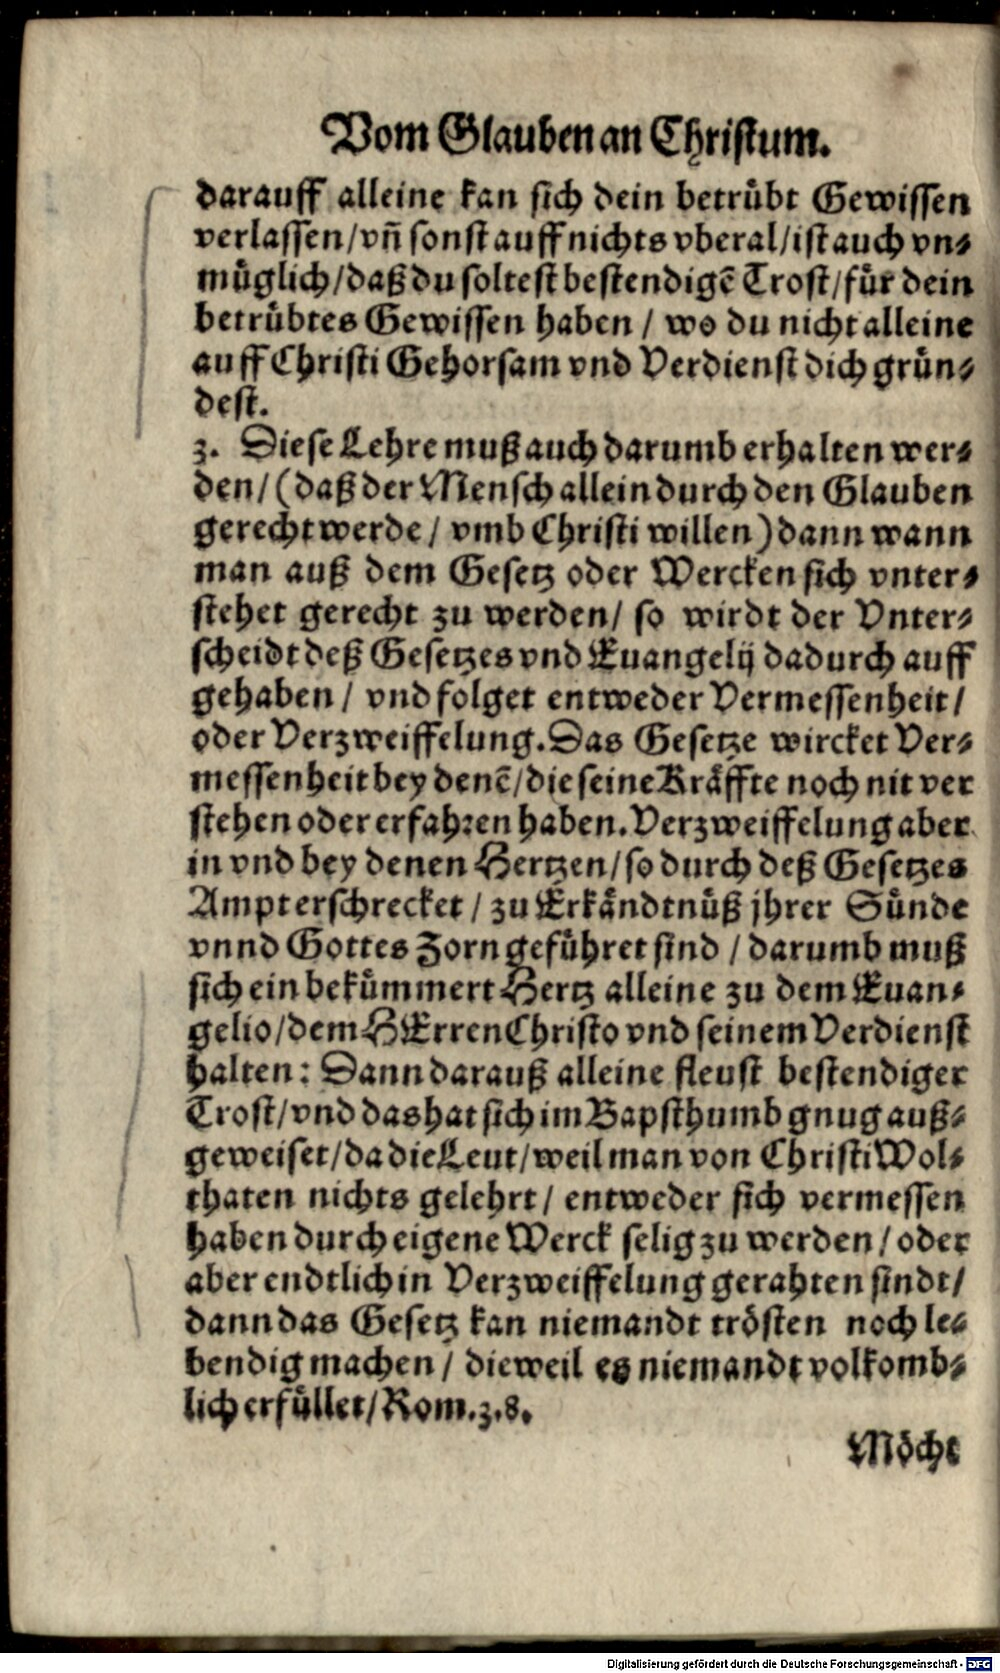 Vom Glauben an Christum.
darauff alleine kan sich dein betrübt Gewissen
verlassen/vñ sonst auff nichts vberal/ist auch vn-
müglich/daß du soltest bestendigẽ Trost/für dein
betrübtes Gewissen haben / wo du nicht alleine
auff Christi Gehorsam vnd Verdienst dich grün-
dest.
3. Diese Lehre muß auch darumb erhalten wer-
den/(daß der Mensch allein durch den Glauben
gerecht werde/ vmb Christi willen) dann wann
man auß dem Gesetz oder Wercken sich vnter-
stehet gerecht zu werden/ so wirdt der Vnter-
scheidt deß Gesetzes vnd Euangelij dadurch auff
gehaben / vnd folget entweder Vermessenheit/
oder Verzweiffelung. Das Gesetze wircket Ver-
messenheit bey denẽ/die seine Kräffte noch nit ver
stehen oder erfahren haben. Verzweiffelung aber
in vnd bey denen Hertzen/so durch deß Gesetzes
Ampt erschrecket / zu Erkändtnüß jhrer Sünde
vnnd Gottes Zorn geführet sind / darumb muß
sich ein bekümmert Hertz alleine zu dem Euan-
gelio/dem HErren Christo vnd seinem Verdienst
halten: Dann darauß alleine fleust bestendiger
Trost/vnd das hat sich im Bapsthumb gnug auß-
geweiset/da die Leut/weil man von Christi Wol-
thaten nichts gelehrt/ entweder sich vermessen
haben durch eigene Werck selig zu werden/oder
aber endtlich in Verzweiffelung gerahten sindt/
dann das Gesetz kan niemandt trösten noch le-
bendig machen / dieweil es niemandt volkomb-
lich erfüllet/Rom.3.8.
Möcht
Digitalisierung gefördert durch die Deutsche Forschungsgemeinschaft - DFG